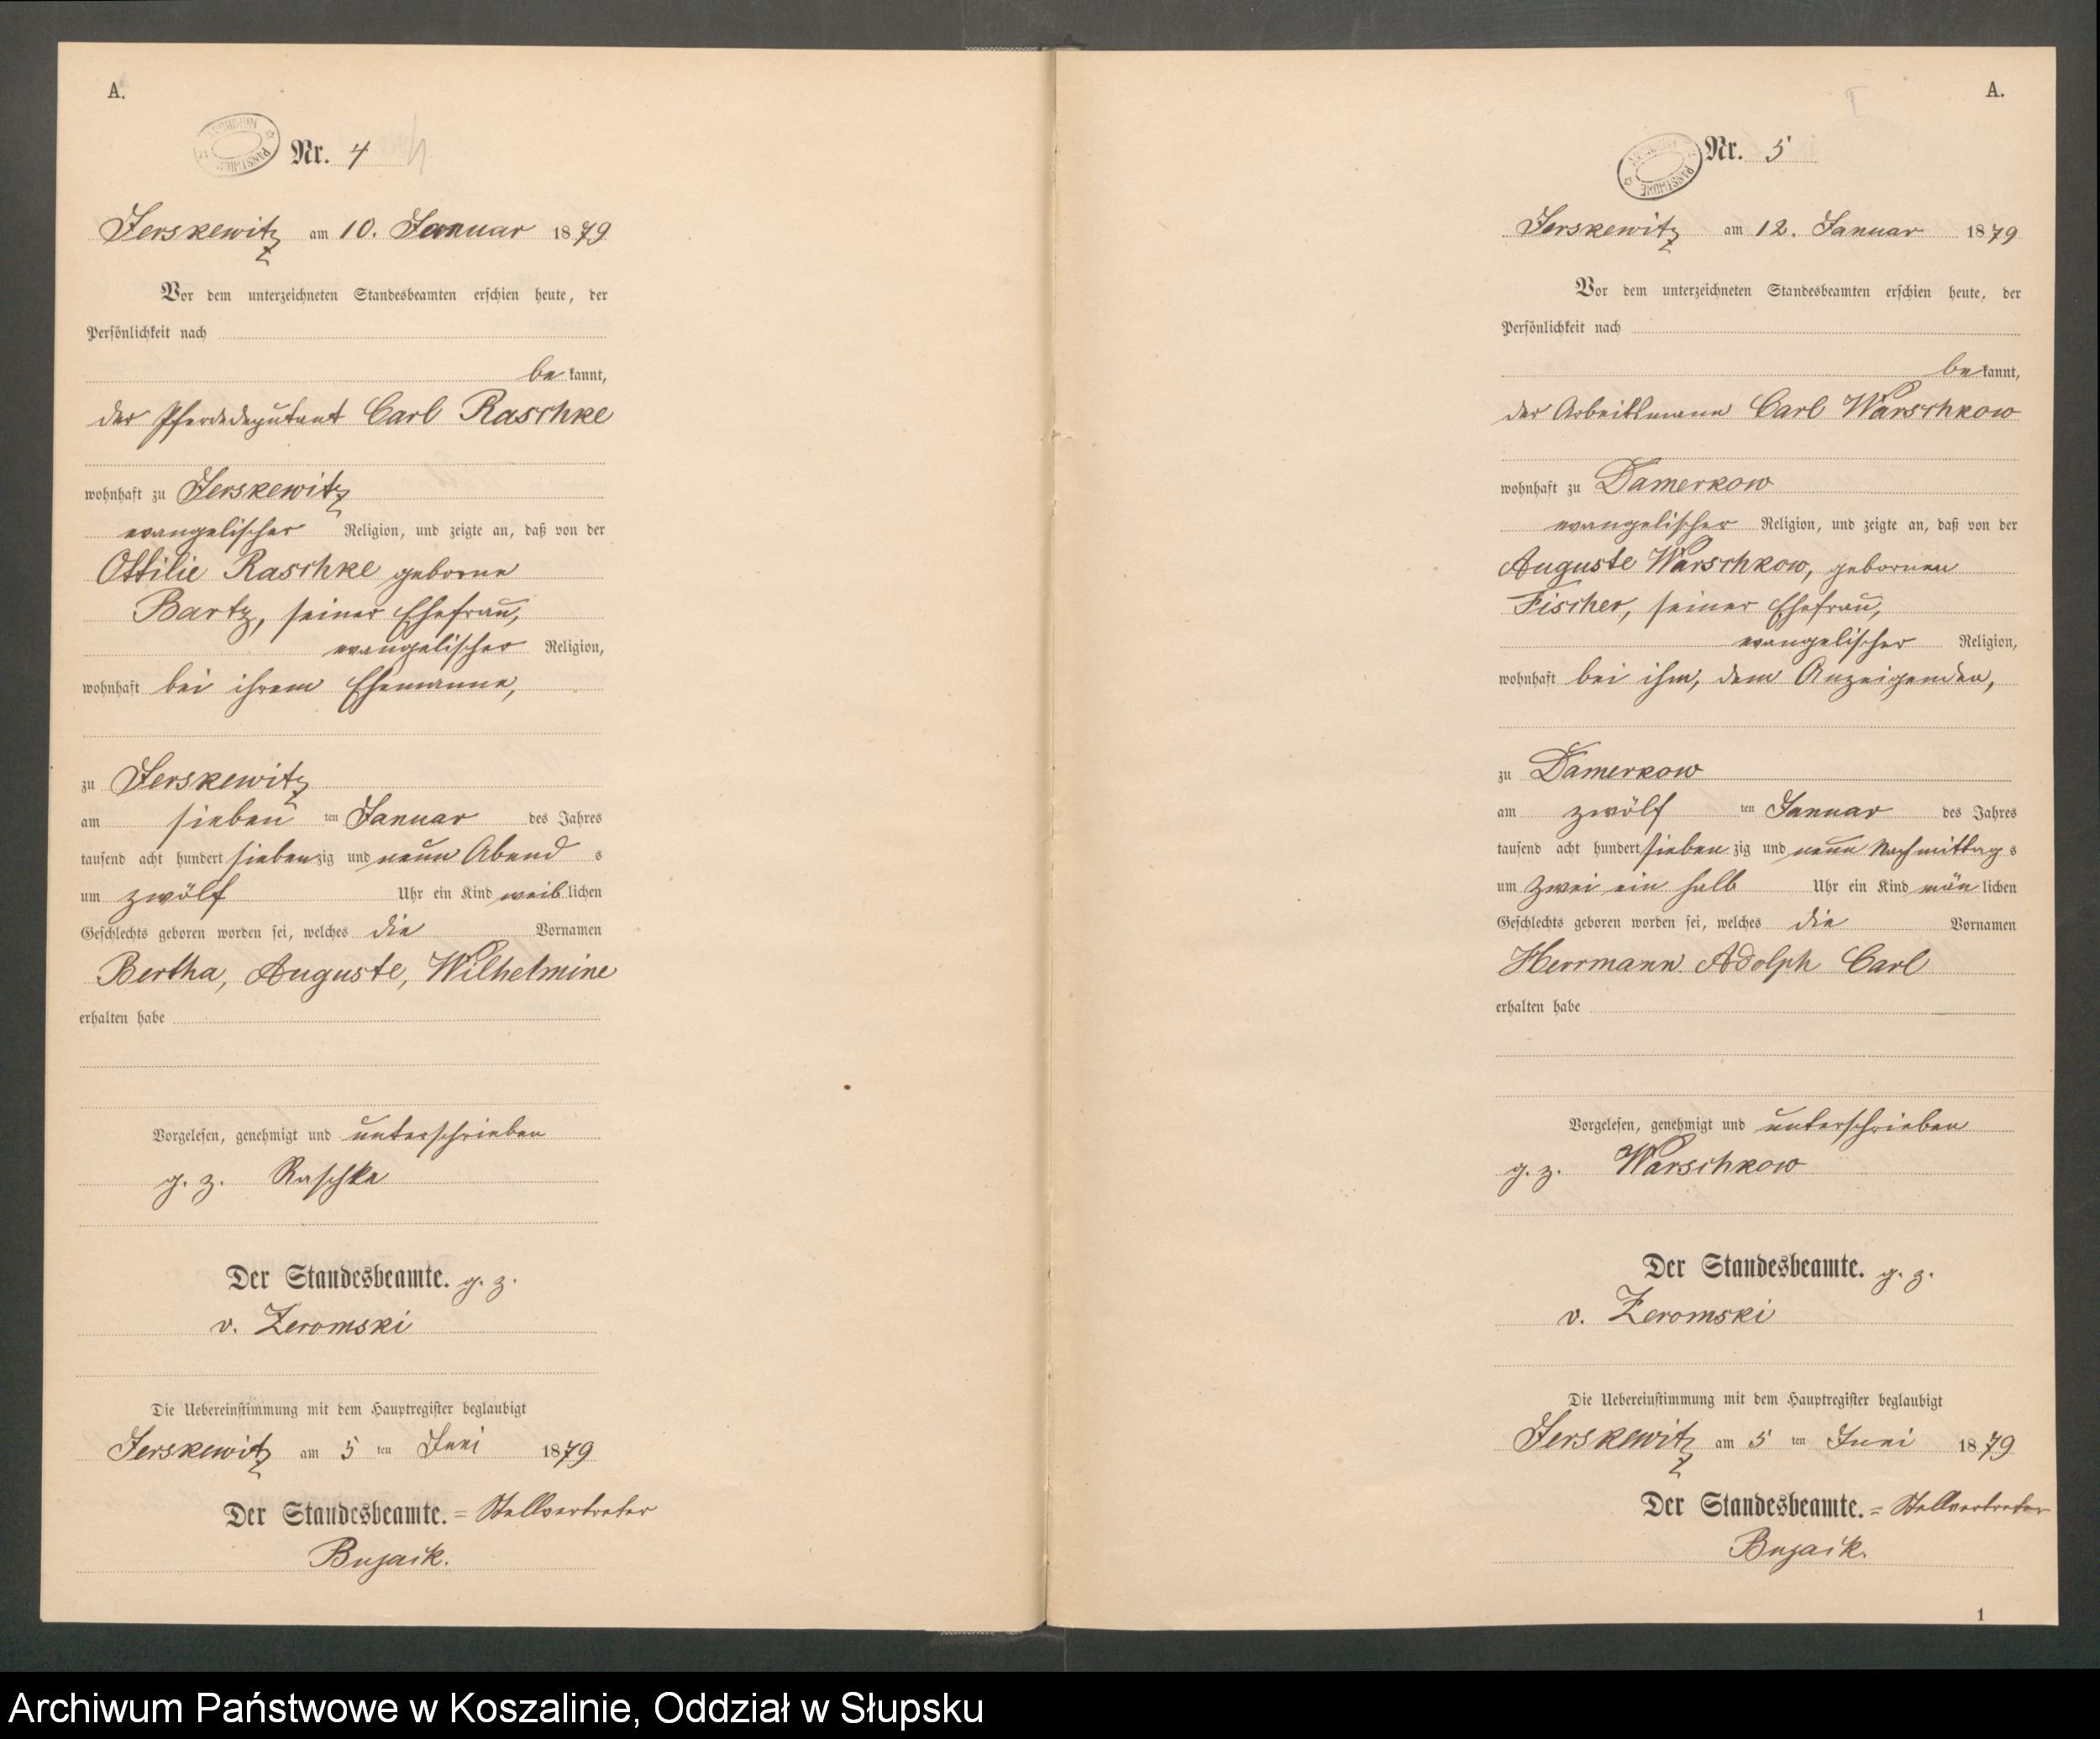 A.
ARCHIWUM PAŃSTWOWE
Nr. 4
Jerskewitz am 10. Januar 1879
Vor dem unterzeichneten Standesbeamten erschien heute, der
Persönlichkeit nach
bekannt,
der Pferdedeputant Carl Raschke
wohnhaft zu Jerskewitz
evangelischer Religion, und zeigte an, daß von der
Ottilie Raschke geborne
Bartz, seiner Ehefrau,
evangelischer Religion,
wohnhaft bei ihrem Ehemanne,
zu Jerskewitz
am sieben ten Januar des Jahres
tausend acht hundert siebenzig und neun Abends
um zwölf Uhr ein Kind weiblichen
Geschlechts geboren worden sei, welches die Vornamen
Bertha, Auguste, Wilhelmine
erhalten habe
Vorgelesen, genehmigt und unterschrieben
g. z. Raschke
Der Standesbeamte. g. z.
v. Zeromski
Die Uebereinstimmung mit dem Hauptregister beglaubigt
Jerskewitz am 5 ten Juni 1879
Der Standesbeamte. = Stellvertreter
A.
ARCHIWUM PAŃSTWOWE
Nr. 5
Jerskewitz am 12. Januar 1879
Vor dem unterzeichneten Standesbeamten erschien heute, der
Persönlichkeit nach
bekannt,
der Arbeitsmann Carl Warschkow
wohnhaft zu Damerkow
evangelischer Religion, und zeigte an, daß von der
Auguste Warschkow, gebornen
Fischer, seiner Ehefrau,
evangelischer Religion,
wohnhaft bei ihm, dem Anzeigenden,
zu Damerkow
am zwölf ten Januar des Jahres
tausend acht hundert siebenzig und neun Nachmittags
um zwei ein halb Uhr ein Kind mänlichen
Geschlechts geboren worden sei, welches die Vornamen
Herrmann Adolph Carl
erhalten habe
Vorgelesen, genehmigt und unterschrieben
g. z. Warschkow
Der Standesbeamte. g. z.
v. Zeromski
Die Uebereinstimmung mit dem Hauptregister beglaubigt
Jerskewitz am 5 ten Juni 1879
Der Standesbeamte. = Stellvertreter
1
Archiwum Państwowe w Koszalinie, Oddział w Słupsku